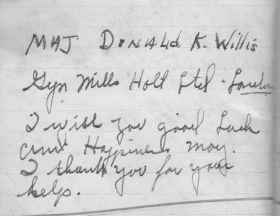 MAJ DONALD K. Willis
Gyn Mills Holt Ltd - London
I wish you good Luck
and Happiness Maj.
I thank you for your
help.